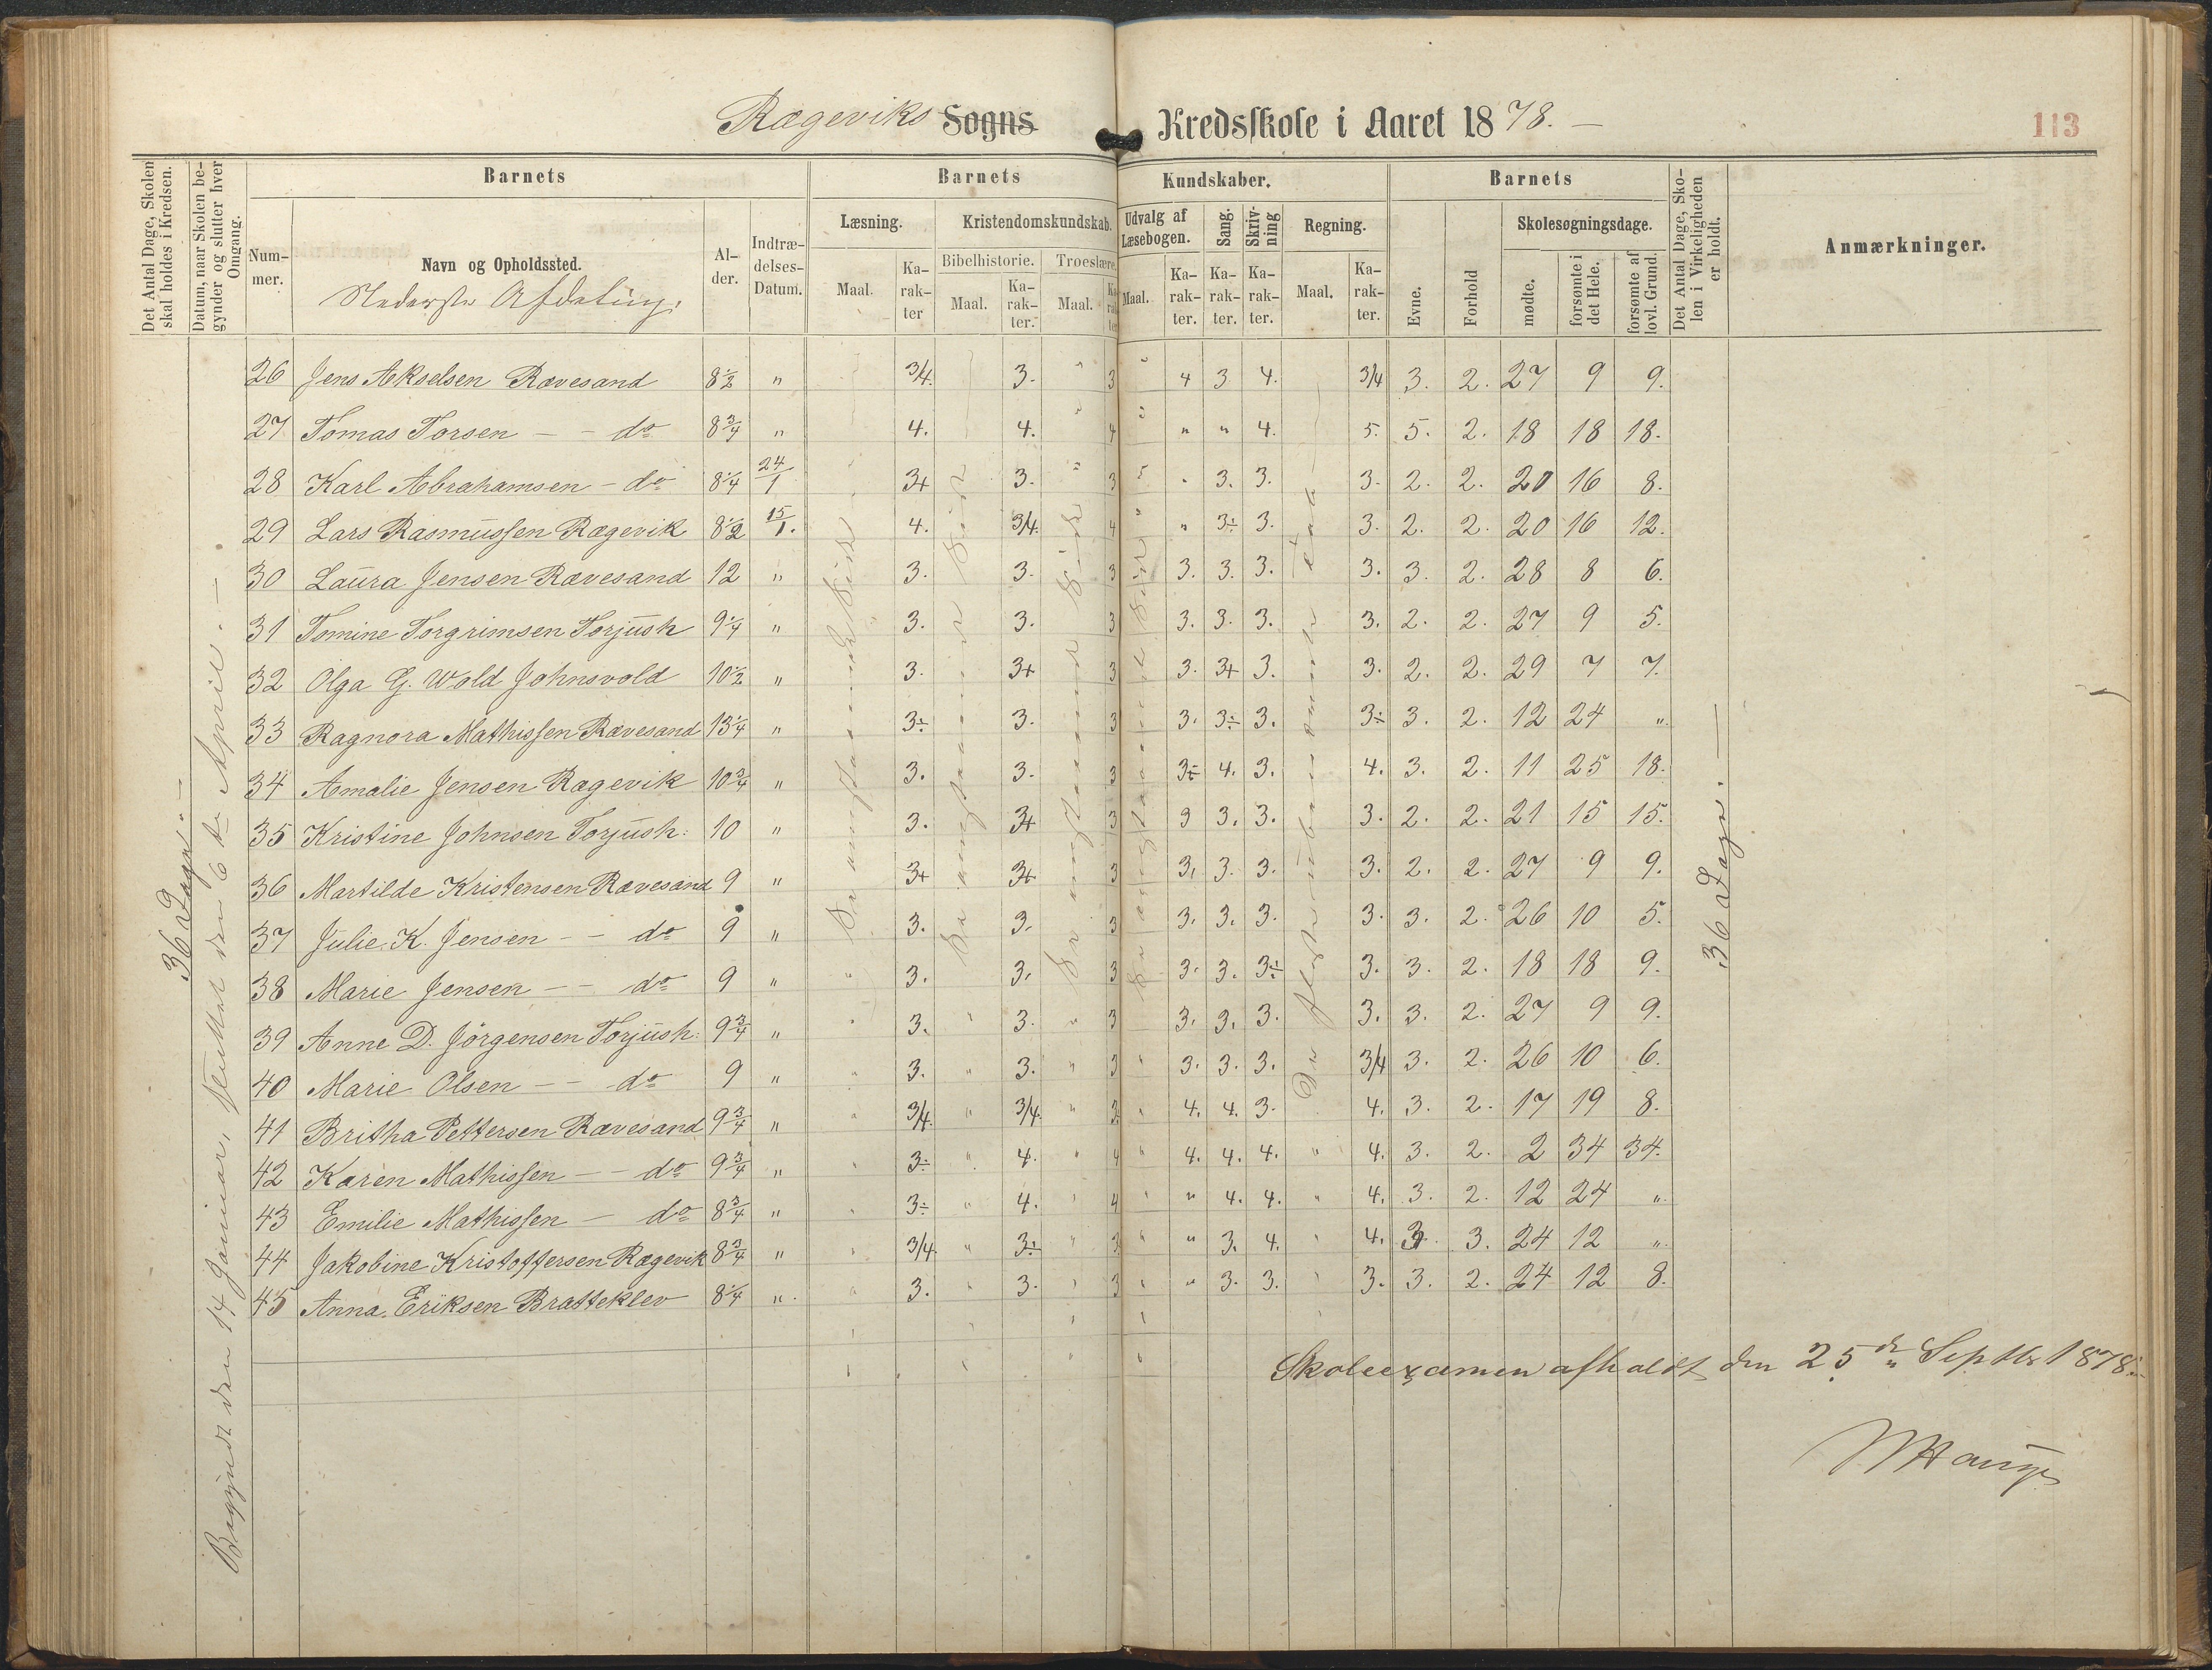 Rægeviks Sogns Kredsskole i Aaret 1878. —
113
Det Antal Dage, Skolen skal holdes i Kredsen.
Datum, naar Skolen begynder og slutter hver Omgang.
Barnets
Barnets Kundskaber.
Barnets
Det Antal Dage, Skolen i Virkeligheden er holdt.
Anmærkninger.
Nummer.
Navn og Opholdssted.
Nederste Afdeling.
Alder.
Indtrædelses-Datum.
Læsning.
Kristendomskundskab.
Udvalg af Læsebogen.
Sang.
Skrivning
Regning.
Evne.
Forhold
Skolesøgningsdage.
Maal.
Karakter
Bibelhistorie.
Troeslære.
Maal.
Karakter.
Maal.
Karakter
Maal.
Karakter.
Karakter.
Karakter.
Maal.
Karakter.
mødte.
forsømte i det Hele.
forsømte af lovl. Grund.
36 Dage. —
Begyndt den 14 Januar, sluttet den 6te April. —
26 Jens Akselsen Rævesand 8 1/2 " 3/4. 3. " 3 " 4 3 4. 3/4 3. 2. 27 9 9.
27 Tomas Torsen — — do 8 3/4 " 4. 4. " 4 " " " 4. 5. 5. 2. 18 18 18.
28 Karl Abrahamsen — do 8 1/4 24/1 3+ 3. " 3 " " 3. 3. 3. 2. 2. 20 16 8.
29 Lars Rasmussen Rægevik 8 1/2 15/1. 4. 3/4. 4 " " 3÷ 3. 3. 2. 2. 20 16 12.
30 Laura Jensen Rævesand 12 " 3. 3. 3 3. 3. 3. 3. 3. 2. 28 8 6.
31 Tomine Torgrimsen Torjush 9 1/4 " 3. 3. 3 3. 3. 3. 3. 2. 2. 27 9 5.
32 Olga G. Wold Johnsvold 10 1/2 " 3. 3+ 3 3. 3+ 3. 3. 2. 2. 29 7 7.
33 Ragnora Mathissen Rævesand 13 1/4 " 3÷ 3. 3 3. 3÷ 3. 3÷ 3. 2. 12 24 "
34 Amalie Jensen Rægevik 10 3/4 " 3. 3. 3 3÷ 4. 3. 4. 3. 2. 11 25 18.
35 Kristine Johnsen Torjush: 10 " 3. 3+ 3 3 3. 3. 3. 2. 2. 21 15 15.
36 Martilde Kristensen Rævesand 9 " 3+ 3+ 3 3. 3. 3. 3. 2. 2. 27 9 9.
37 Julie K. Jensen — — do 9 " 3. 3. 3 3. 3. 3. 3. 3. 2. 26 10 5.
38 Marie Jensen — — do 9 " 3. 3. 3 3. 3. 3÷ 3. 3. 2. 18 18 9.
39 Anne D. Jørgensen Torjush: 9 3/4 " 3. " 3. " 3 3. 3. 3. 3. 3. 2. 27 9 9.
40 Marie Olsen — — do 9 " 3. " 3. " 3 " 3. 3. 3. 3/4 3. 2. 26 10 6.
41 Britha Pettersen Rævesand 9 3/4 " 3/4. " 3/4. " 3 " 4. 4. 3. 4. 3. 2. 17 19 8.
42 Karen Mathissen — — do 9 3/4 " 3÷ " 4. " 4 " 4. 4. 4. " 4. 3. 2. 2 34 34.
43 Emilie Mathissen — do 8 3/4 " 3÷ " 4. " 4 " " 4. 4. " 4. 3. 2. 12 24 "
44 Jakobine Kristoffersen Rægevik 8 3/4 " 3/4. " 3÷ " 3. " " 3. 4. " 4. 3. 3. 24 12 "
45 Anna Eriksen Bratteklev 8 1/4 " 3. " 3. " 3 " " 3. 3. " 3. 3. 2. 24 12 8.
36 Dage. —
Skoleexamen afholdt den 25de Septbr 1878.